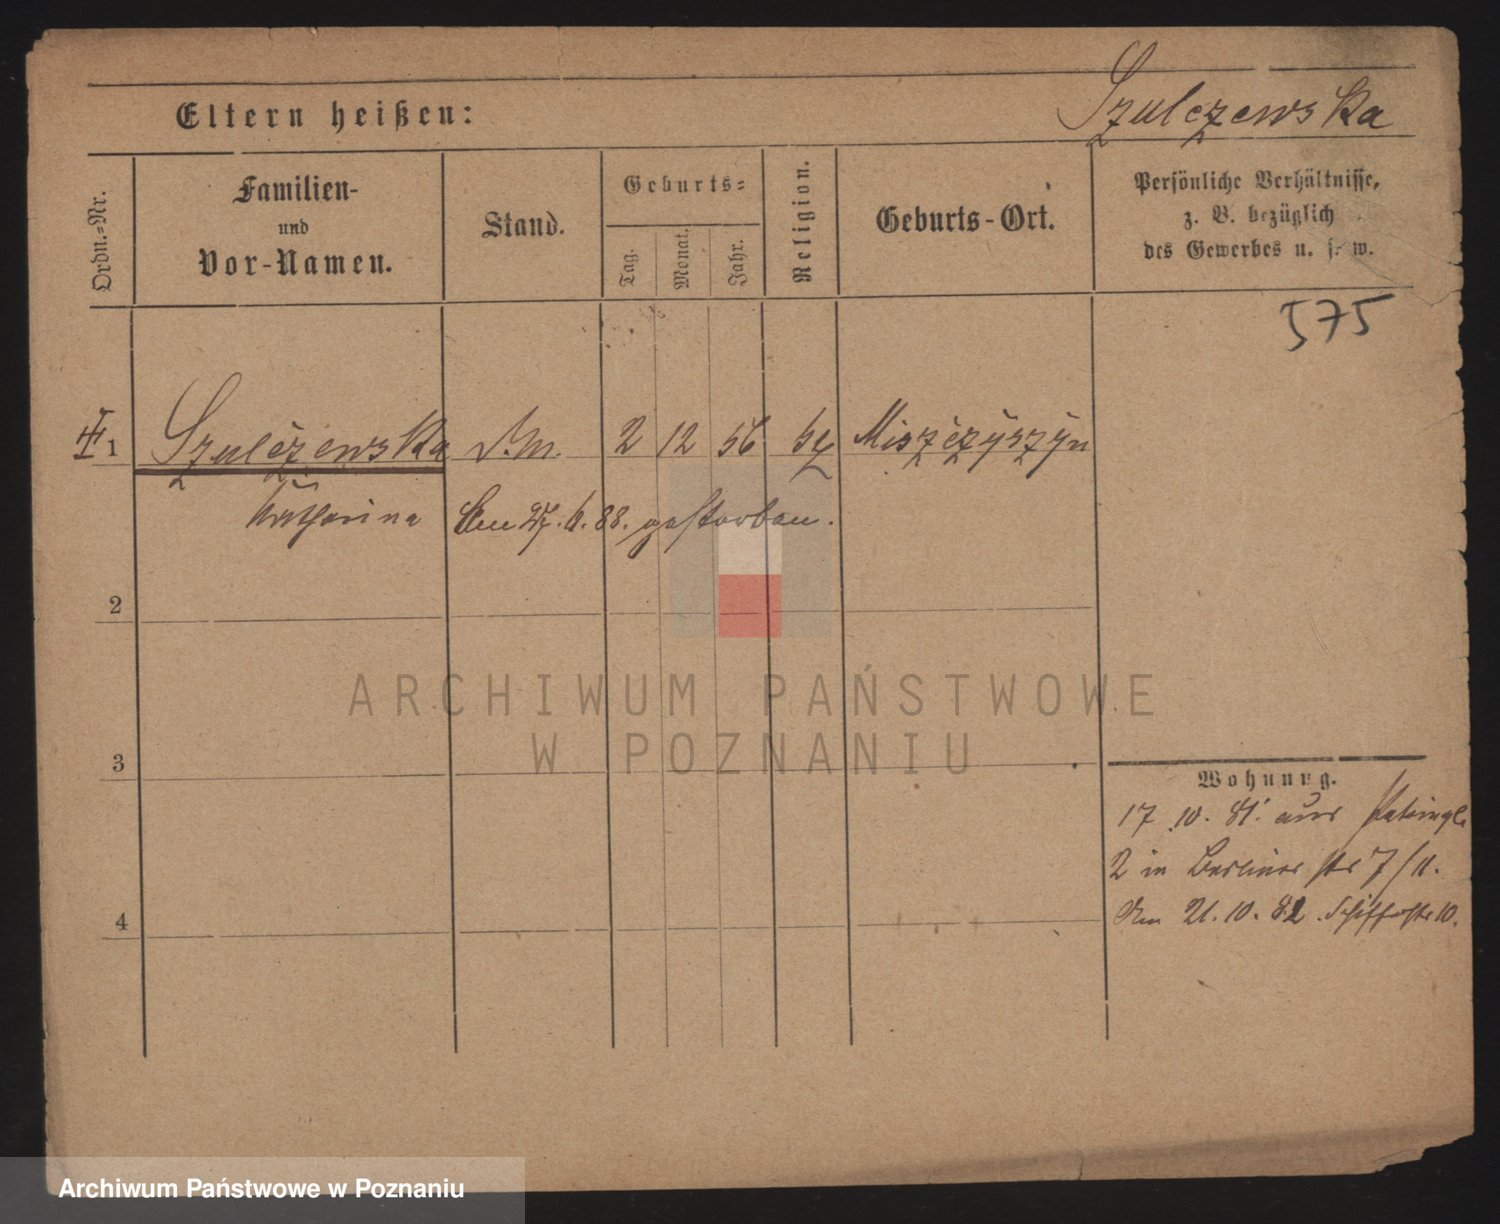 Szulczewska
Eltern heißen:
Ordn.-Nr.
Familien-
und
Vor-Namen.
Stand.
Geburts-
Tag.
Monat.
Jahr.
Religion.
Geburts-Ort.
Persönliche Verhältnisse,
z. B. bezüglich
des Gewerbes u. s. w.
575
1 Szulczewska 2 12 56 Miszczyszyn
Katharina Am 27. 6. 88. gestorben.
2
3
4
Wohnung.
17. 10. 81. aus
2 in Berliner str 7/II.
Am 21. 10. 82 Schifferstr 10.
ARCHIWUM PAŃSTWOWE
W POZNANIU
Archiwum Państwowe w Poznaniu